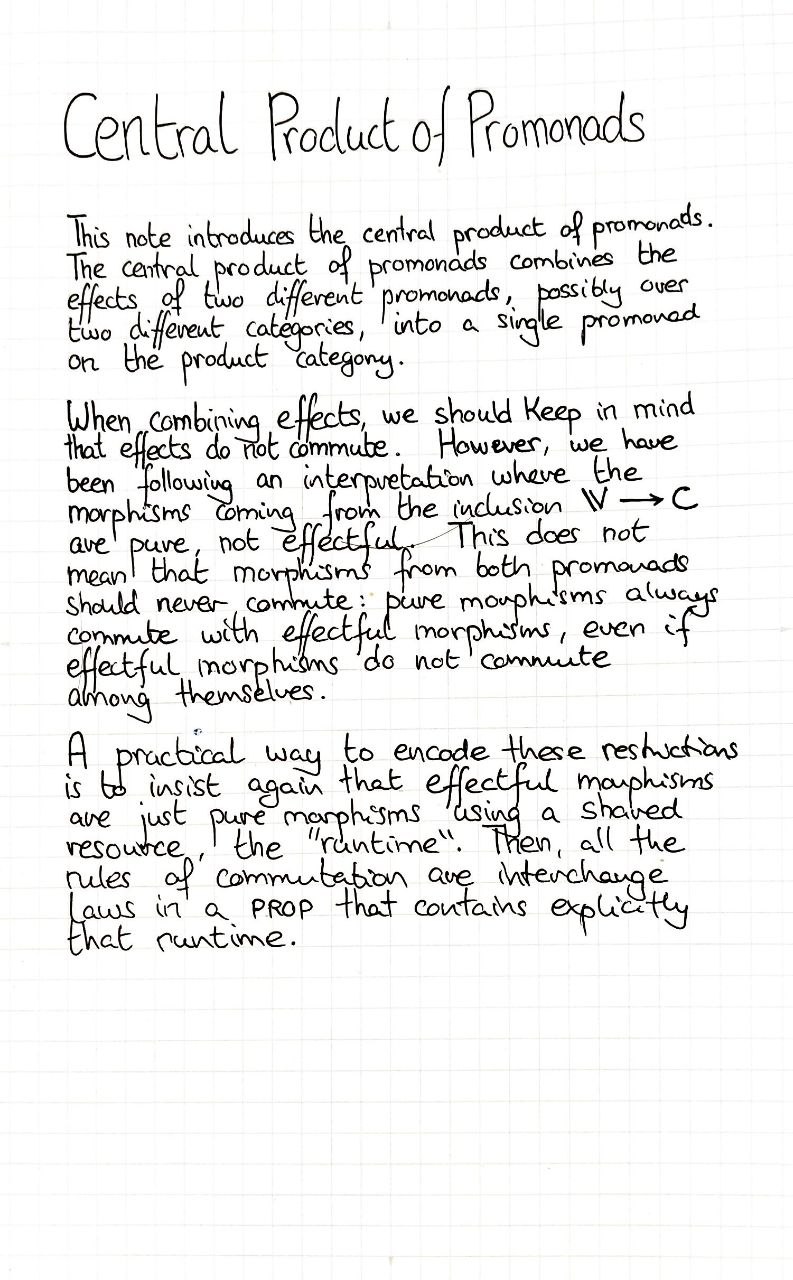 Central Product of Promonads
This note introduces the central product of promonads.
The central product of promonads combines the
effects of two different promonads, possibly over
two different categories, into a single promonad
on the product category.
When combining effects, we should keep in mind
that effects do not commute. However, we have
been following an interpretation where the
morphisms coming from the inclusion V → C
are pure, not effectful. This does not
mean that morphisms from both promonads
should never commute: pure morphisms always
commute with effectful morphisms, even if
effectful morphisms do not commute
among themselves.
A practical way to encode these restrictions
is to insist again that effectful morphisms
are just pure morphisms using a shared
resource, the "runtime". Then, all the
rules of commutation are interchange
laws in a PROP that contains explicitly
that runtime.